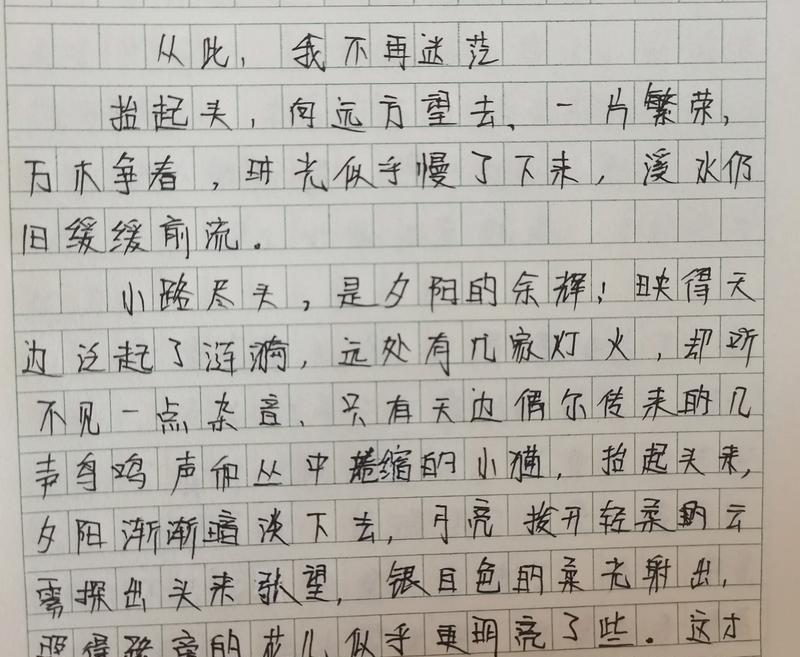 从此，我不再迷茫
抬起头，向远方望去、一片繁荣，
万木争春，时光似乎慢了下来，溪水仍
旧缓缓前流。
小路尽头，是夕阳的余辉！映得天
边泛起了涟漪，远处有几家灯火，却听
不见一点杂音、只有天边偶尔传来的几
声鸟鸣声和丛中蜷缩的小猫，抬起头来，
夕阳渐渐暗淡下去，月亮拨开轻柔的云
雾探出头来张望，银白色的柔光射出，
照得路旁的花儿似乎更明亮了些。这才